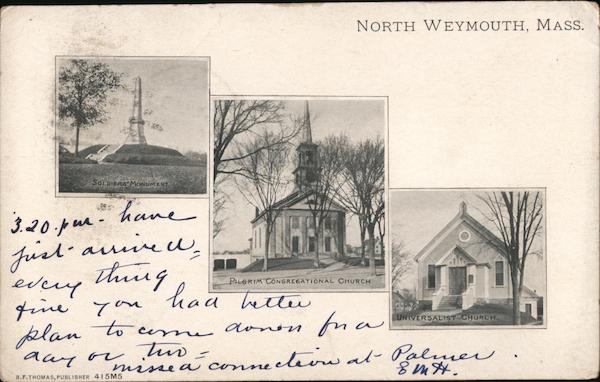 NORTH WEYMOUTH, MASS.
SOLDIERS' MONUMENT
PILGRIM CONGREGATIONAL CHURCH
UNIVERSALIST CHURCH
3.20 p.m - have
just arrived =
every thing
fine you had better
plan to come down for a
day or two =
missed connection at Palmer.
E M H.
B. F. THOMAS, PUBLISHER 415M5